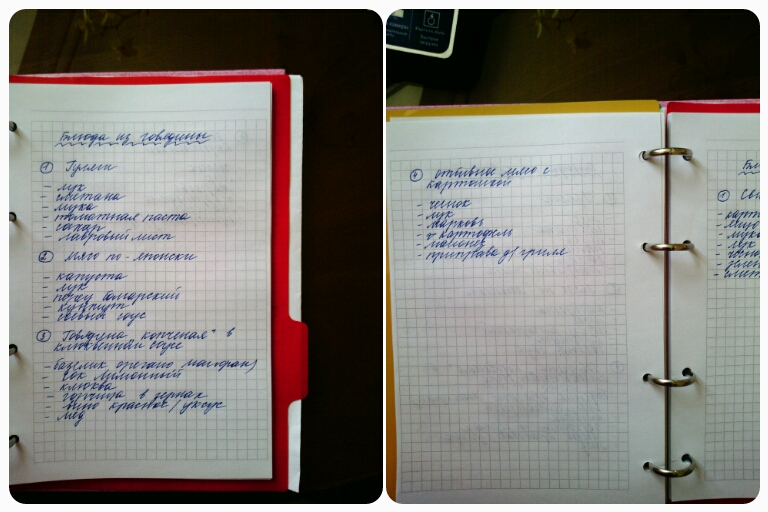 Блюда из говядины
① Гуляш
- лук
- сметана
- мука
- томатная паста
- сахар
- лавровый лист
② Мясо по-японски
- капуста
- лук
- перец болгарский
- кунжут
- соевый соус
③ Говядина "копченая" в
клюквенном соусе
- базилик орегано майоран)
- сок лимонный
- клюква
- горчица в зернах
- вино красное / уксус
- мёд
④ отбивное мясо с
картошкой
- чеснок
- лук
- марковь
- картофель
- майонез
- приправа дл гриля
①
- лук